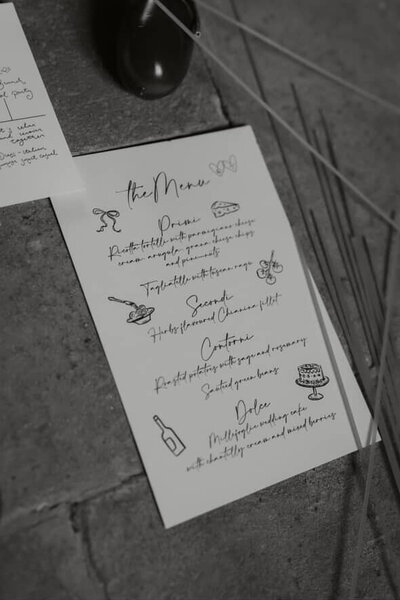 the Menu
Primi
Ricotta tortelle with parmigiano cheese
cream, arugula, grana cheese chips
and pinenuts
Tagliatelle with tuscan ragu
Secondi
Herbs flavoured Chianina fillet
Contorni
Roasted potatoes with sage and rosemary
Sauteed green beans
Dolce
Millefoglie wedding cake
with chantilly cream and mixed berries
party
together